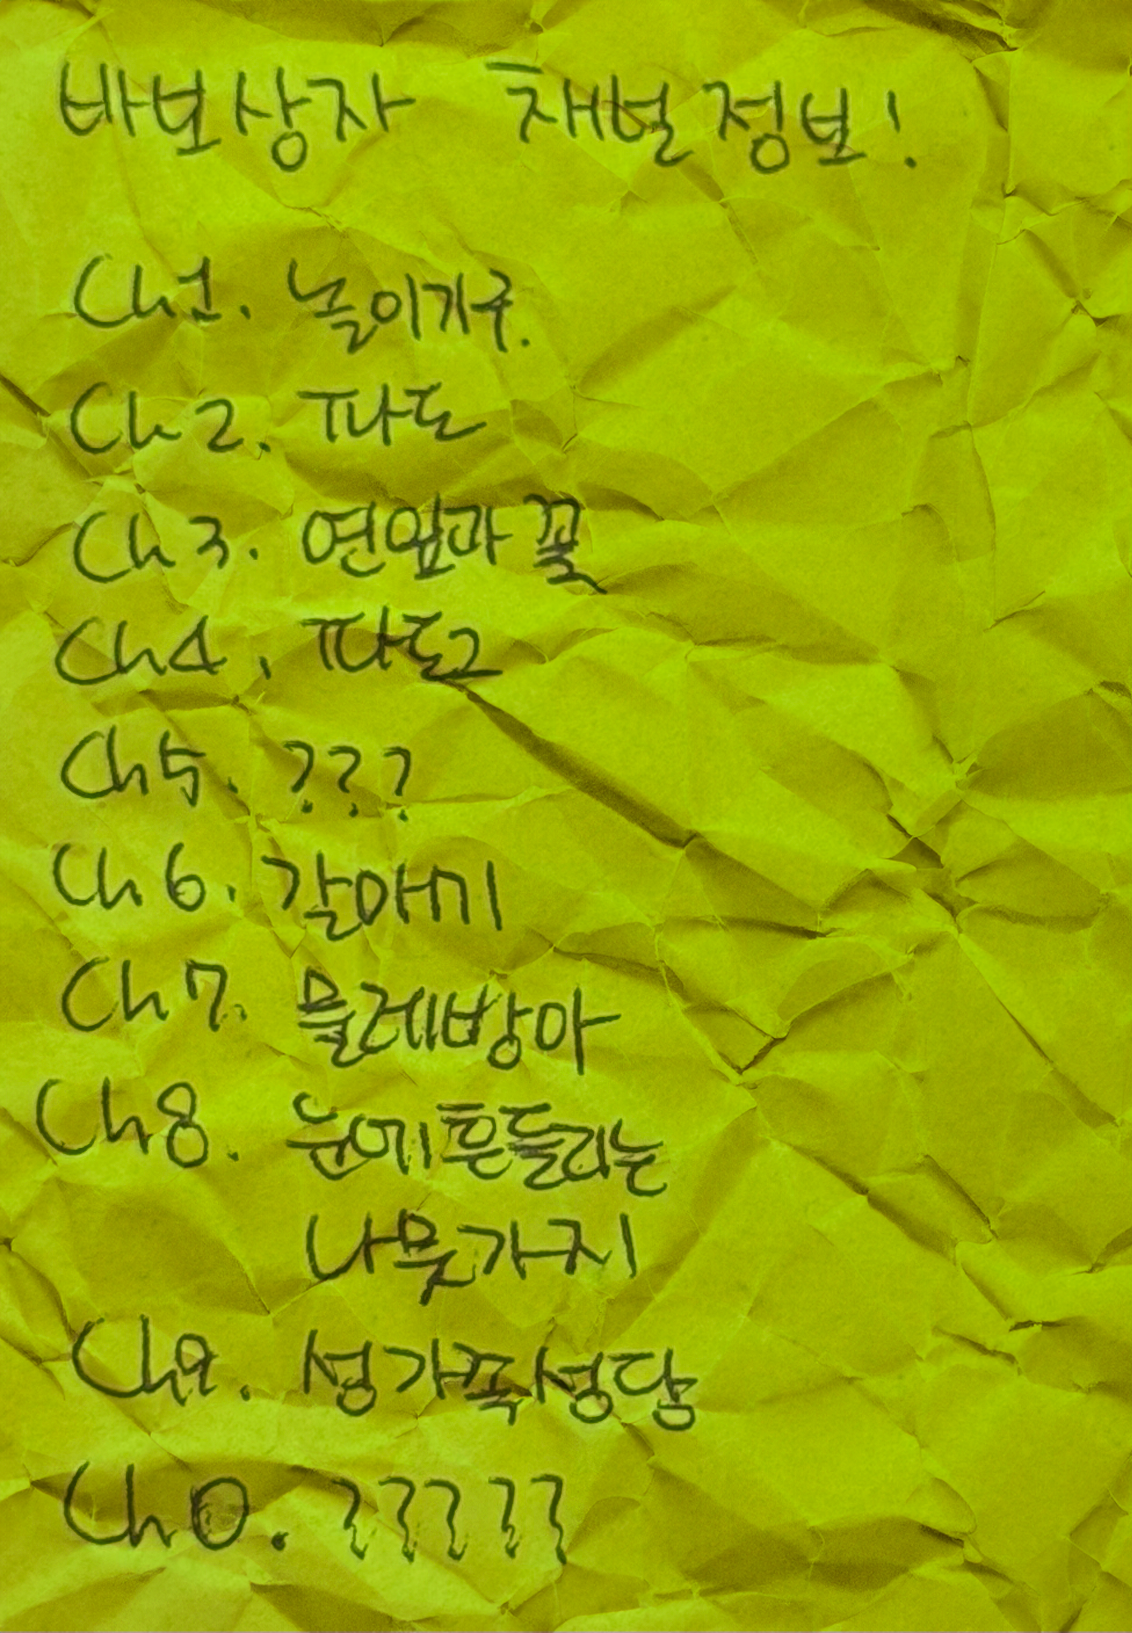 바보상자 채널정보!
Ch1. 놀이기구.
Ch2. 파도
Ch3. 연잎과 꽃
Ch4. 파도2
Ch5. ???
Ch6. 갈매기
Ch7. 물레방아
Ch8. 눈에 흔들리는
나뭇가지
Ch9. 성가족성당
Ch0. ?????